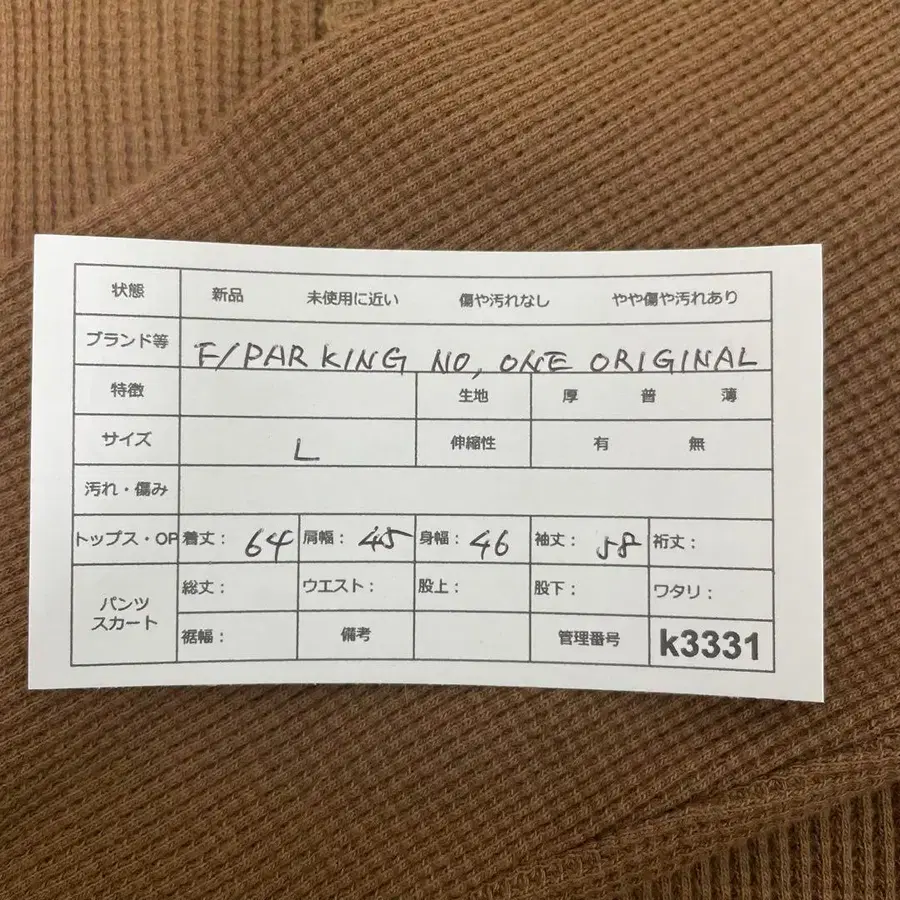 状態 新品 未使用に近い 傷や汚れなし やや傷や汚れあり
ブランド等 F/PARKING NO, ONE ORIGINAL
特徴 生地 厚 普 薄
サイズ L 伸縮性 有 無
汚れ・傷み
トップス・OP 着丈： 64 肩幅： 45 身幅： 46 袖丈： 58 裄丈：
パンツ スカート 総丈： ウエスト： 股上： 股下： ワタリ：
裾幅： 備考 管理番号 k3331